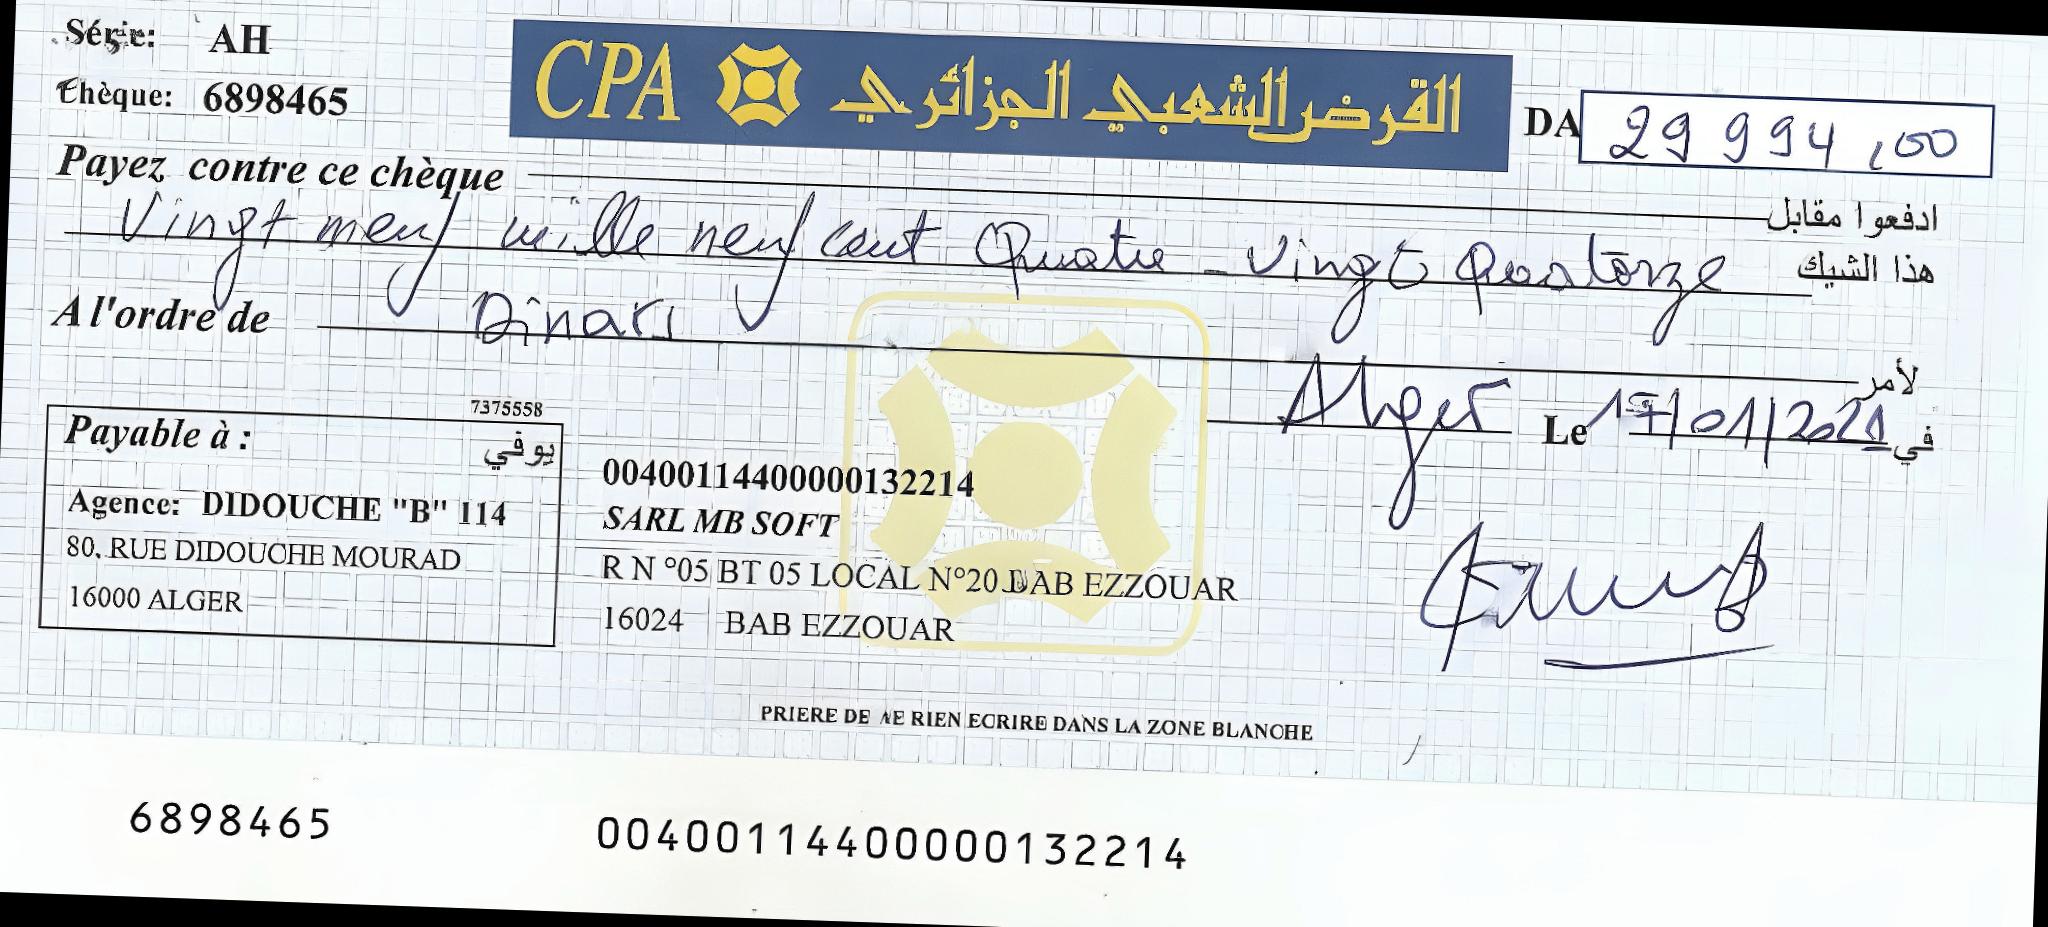 Série: AH
Chèque: 6898465
CPA القرض الشعبي الجزائري
DA 29 994,00
Payez contre ce chèque ادفعوا مقابل
Vingt neuf mille neuf cent Quatre-vingt Quatorze هذا الشيك
A l'ordre de Dinars لأمر
Alger Le 17/01/2021 في
7375558
Payable à : يوفي
Agence: DIDOUCHE "B" 114
80, RUE DIDOUCHE MOURAD
16000 ALGER
00400114400000132214
SARL MB SOFT
R N °05 BT 05 LOCAL N°20 BAB EZZOUAR
16024 BAB EZZOUAR
PRIERE DE NE RIEN ECRIRE DANS LA ZONE BLANCHE
6898465 00400114400000132214